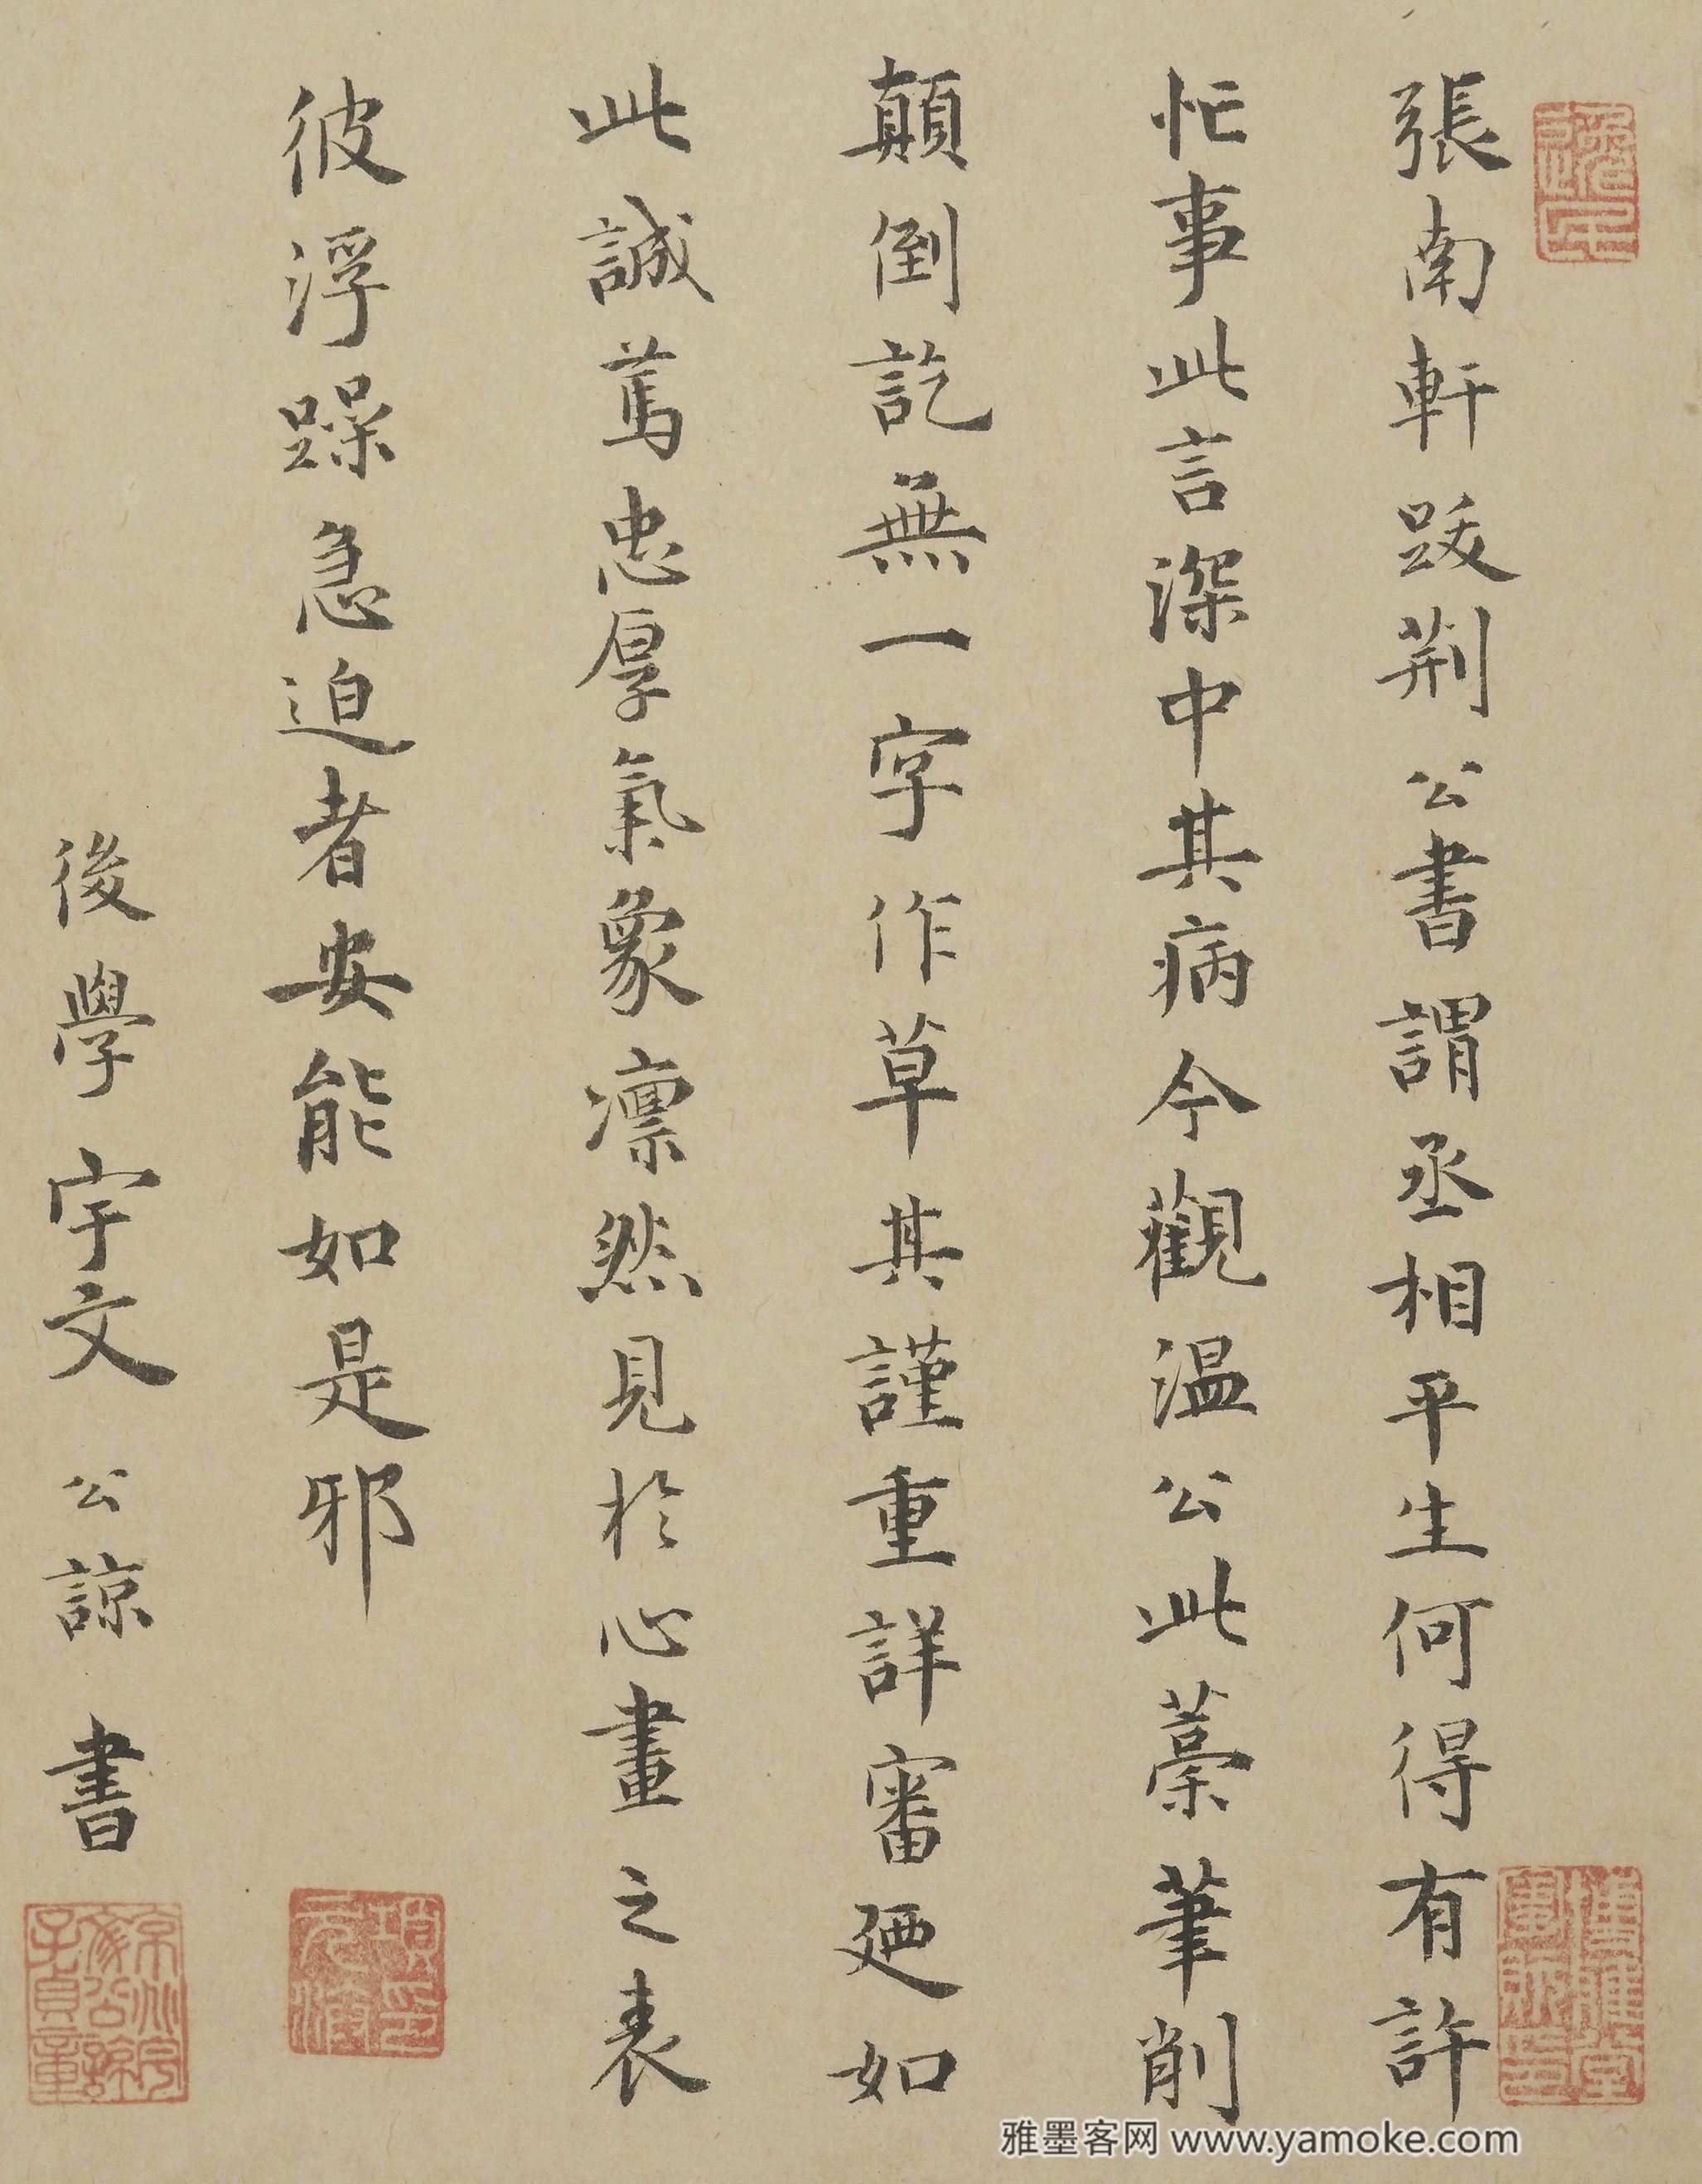 張南軒跋荆公書謂丞相平生何得有許
忙事此言深中其病今觀温公此藁筆削
顛倒訖無一字作草其謹重詳審廼如
此誠篤忠厚氣象凛然見於心畫之表
彼浮躁急迫者安能如是邪
後學宇文公諒書
項元汴印
雅墨客网 www.yamoke.com